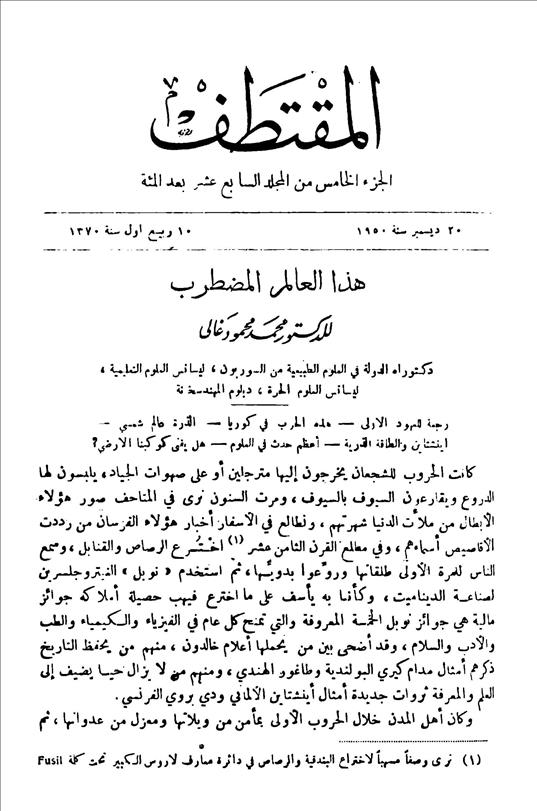 المقتطف
الجزء الخامس من المجلد السابع عشر بعد المئة
٢٠ ديسمبر سنة ١٩٥٠
١٠ ربيع اول سنة ١٣٧٠
هذا العالم المضطرب
للدكتور محمد محمود غالى
دكتوراه الدولة في العلوم الطبيعية من السوربون ، ليسانس العلوم التعليمية ،
ليسانس العلوم الحرة ، دبلوم المهندسخانة
رجعة للعهود الاولى — هذه الحرب في كوريا — الذرة عالم شمسي —
اينشتاين والطاقة الذرية — أعظم حدث في العلوم — هل يفنى كوكبنا الارضي؟
كانت الحروب للشجعان يخرجون إليها مترجلين أو على صهوات الجياد ، يلبسون لها
الدروع ويقارعون السيوف بالسيوف ، ومرت السنون نرى في المتاحف صور هؤلاء
الأبطال من ملأت الدنيا شهرتهم ، ونطالع في الأسفار أخبار هؤلاء الفرسان من رددت
الأقاصيص أسماءهم ، وفي مطلع القرن الثامن عشر (١) اختُرع الرصاص والقنابل ، وسمع
الناس للمرة الأولى طلقاتها وروِّعوا بدويِّها ، ثم استخدم « نوبل » النيتروجلسرين
لصناعة الديناميت ، وكأنما به يأسف على ما اخترع فيهب حصيلة أملاكه جوائز
مالية هي جوائز نوبل الخمسة المعروفة والتي تمنح كل عام في الفيزياء والكيمياء والطب
والأدب والسلام ، وقد أضحى بين من يحملها أعلام خالدون ، منهم من يحفظ التاريخ
ذكرهم أمثال مدام كيري البولندية وطاغور الهندي ، ومنهم من لا يزال حيا يضيف إلى
العلم والمعرفة ثروات جديدة أمثال أينشتاين الألماني ودي بروي الفرنسي .
وكان أهل المدن خلال الحروب الأولى بمأمن من ويلاتها ومعزل من عدوانها ، ثم
(١) نرى وصفاً مسهباً لاختراع البندقية والرصاص في دائرة معارف لاروس الكبير تحت كلمة Fusil